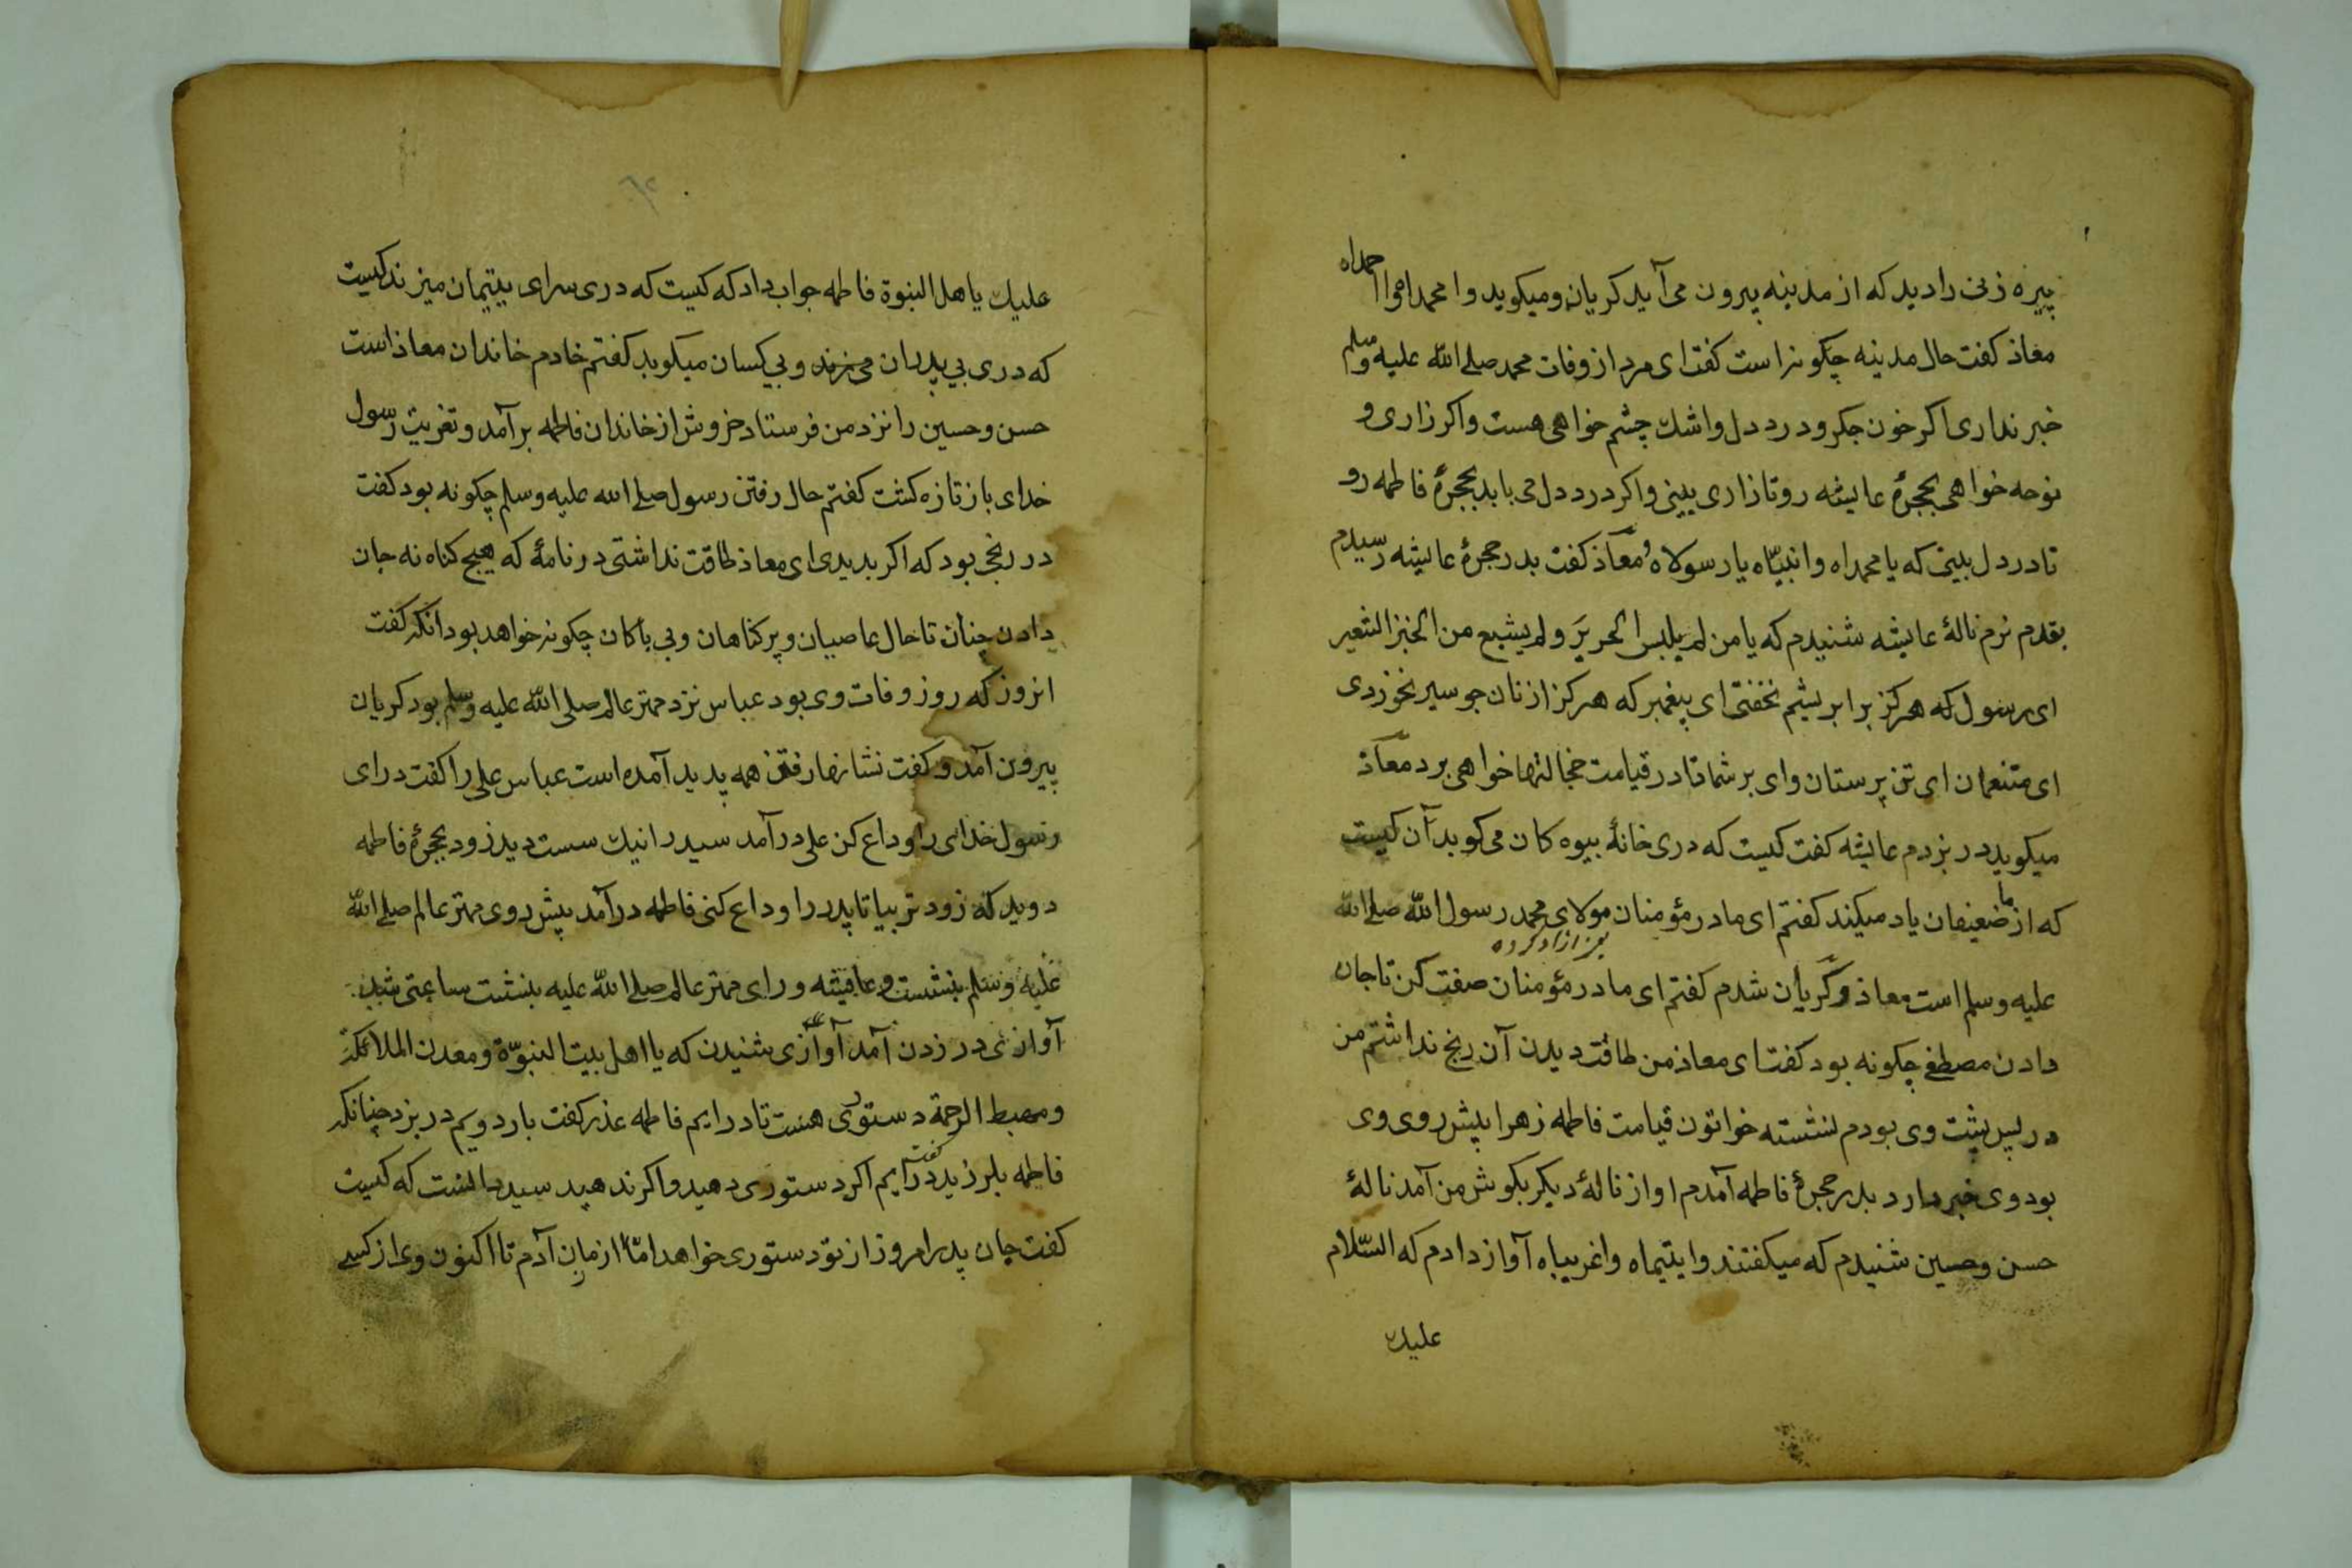 پیره زنی را دید که از مدینه بیرون می آید کریان و میکوید وا محمداه وا احمداه
معاذ کفت حال مدینه چکونه است کفت ای مرد از وفات محمد صلی الله علیه وسلم
خبر نداری اکر خون جکر و درد دل واشک چشم خواهی هست واکر زاری و
نوحه خواهی بحجرهٔ عایشه رو تا زاری بینی واکر درد دل می باید بحجرهٔ فاطمه رو
تا درد دل بینی که یا محمداه وا نبیّاه یا رسولاه و معاذ کفت بدر حجرهٔ عایشه رسیدم
بقدم نرم نالهٔ عایشه شنیدم که یا من لم یلبس الحریرَ ولم یشبع من الخبز الشعیر
ای رسول که هرکز بر ابریشم نخفتی ای پیغمبر که هرکز از نان جو سیر نخوردی
ای متنعمان ای تن پرستان وای بر شما تا در قیامت خجالتها خواهی برد معاذ
میکوید در بزدم عایشه کفت کیست که دری خانهٔ بیوه کان می کوبد آن کیست
که از ما ضعیفان یاد میکند کفتم ای مادر مؤمنان مولای محمد رسول الله صلی الله
علیه وسلم است معاذ و کریان شدم کفتم ای مادر مؤمنان صفت کن تا جان
دادن مصطفی چکونه بود کفت ای معاذ من طاقت دیدن آن رنج نداشتم من
در پس پشت وی بودم نشسته خواتون قیامت فاطمه زهرا پیش روی وی
بود وی خبر دارد بدر حجرهٔ فاطمه آمدم اواز نالهٔ دیکر بکوش من آمد نالهٔ
حسن وحسین شنیدم که میکفتند وا یتیماه وا غریباه آواز دادم که السّلام
علیک
علیک یا هل النبوة فاطمه جواب داد که کیست که دری سرای یتیمان میزند کیست
که دری بی پدران می زند و بی کسان میکوید کفتم خادم خاندان معاذ است
حسن وحسین را نزد من فرستاد خروش از خاندان فاطمه برآمد و تعزیت رسول
خدای باز تازه کشت کفتم حال رفتن رسول صلی الله علیه وسلم چکونه بود کفت
در رنجی بود که اکر بدیدی ای معاذ طاقت نداشتی در نامهٔ که هیچ کناه نه جان
دادن چنان تا حال عاصیان و پر کناهان و بی باکان چکونه خواهد بود انکه کفت
انروز که روز وفات وی بود عباس نزد مهتر عالم صلی الله علیه وسلم بود کریان
بیرون آمد و کفت نشانهاء رفتن همه پدید آمده است عباس علی را کفت درای
رسول خدای را وداع کن علی درآمد سید را نیک سست دید زود بحجرهٔ فاطمه
دوید که زودتر بیا تا پدر را وداع کنی فاطمه درآمد پیش روی مهتر عالم صلی الله
علیه وسلم بنشست و عایشه ورای مهتر عالم صلی الله علیه بنشست ساعتی شد
آوازی در زدن آمد آوازی شنیدن که یا اهل بیت النبوّة ومعدن الملائکة
ومهبط الرحمة دستوری هست تا درایم فاطمه عذر کفت بار دویم در بزد چنانکه
فاطمه بلرزید کفت درایم اکر دستوری دهید واکر ندهید سید دانست که کیست
کفت جان پدر امروز از تو دستوری خواهد امّا از زمان آدم تا اکنون وی از کسی